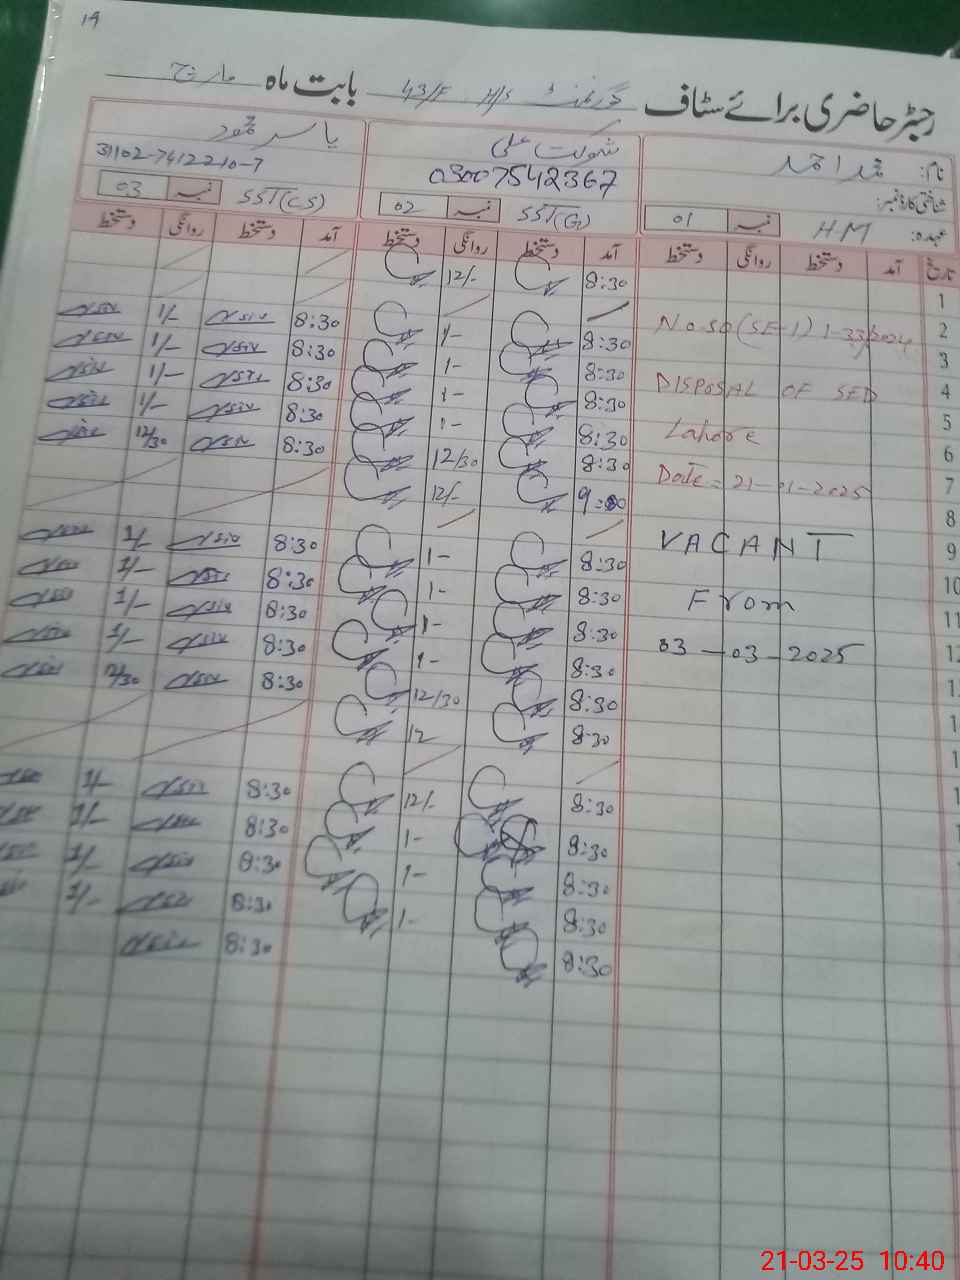 19
رجسٹر حاضری برائے سٹاف گورنمنٹ H/S 43/F بابت ماہ مارچ
نام:
شوکت علی
یاسر محمود
شناختی کارڈ نمبر:
03007542367
31102-7412210-7
عہدہ: HM نمبر 01
SST(G) نمبر 02
SST(CS) نمبر 03
تاریخ آمد دستخط روانگی دستخط آمد دستخط روانگی دستخط آمد دستخط روانگی دستخط
1 8:30 12/-
2 No. SO (SE-1) 1-33/2024
3 8:30 1/- 8:30 1/-
4 DISPOSAL OF SED 8:30 1- 8:30 1/-
5 Lahore 8:30 1- 8:30 1/-
6 8:30 1- 8:30 1/-
7 Date = 21-01-2025 8:30 12/30 8:30 12/30
8 9:00 12/-
9 VACANT
10 From 8:30 1- 8:30 1/-
11 8:30 1- 8:30 1/-
12 03-03-2025 8:30 1- 8:30 1/-
8:30 1- 8:30 1/-
8:30 12/30 8:30 12/30
8:30 12
8:30 12/- 8:30 1/-
8:30 1- 8:30 1/-
8:30 1- 8:30 1/-
8:30 1- 8:30 1/-
8:30 8:30
21-03-25 10:40